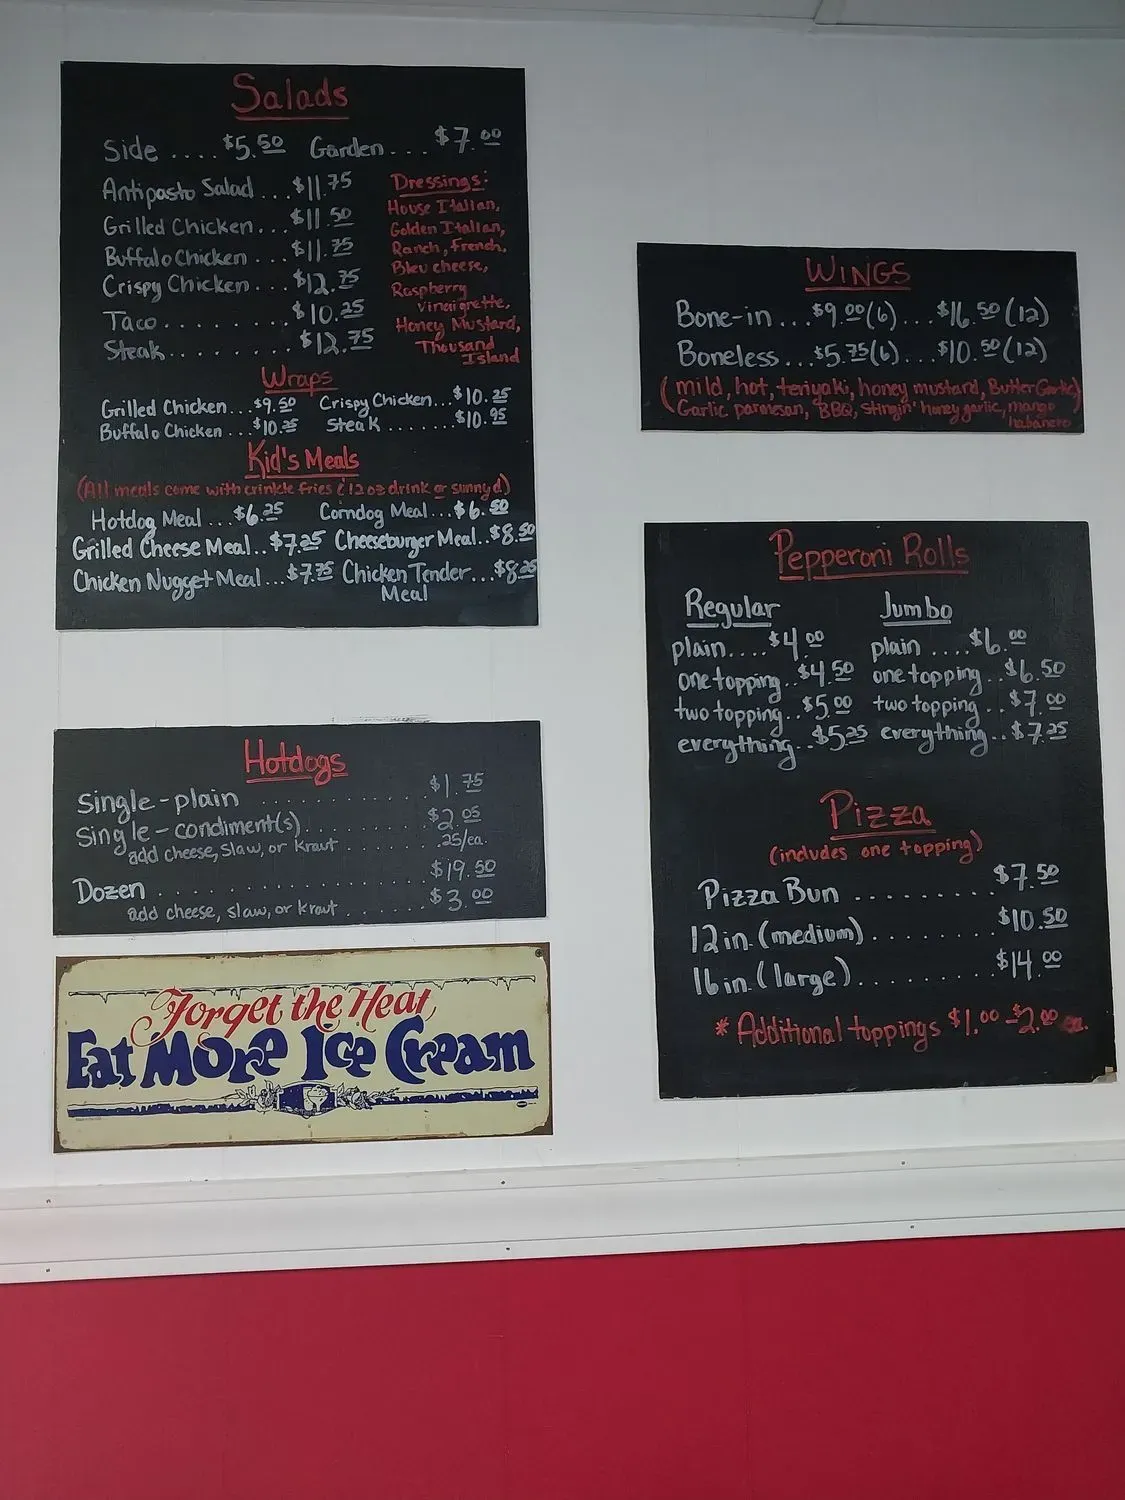 Salads
Side .... $5.50 Garden... $7.00
Antipasto Salad ... $11.75
Grilled Chicken... $11.50
Buffalo Chicken ... $11.75
Crispy Chicken... $12.75
Taco........ $10.25
Steak........ $12.75
Dressings:
House Italian,
Golden Italian,
Ranch, French,
Bleu cheese,
Raspberry
vinaigrette,
Honey Mustard,
Thousand
Island
Wraps
Grilled Chicken...$9.50 Crispy Chicken...$10.25
Buffalo Chicken ...$10.25 Steak .......$10.95
Kid's Meals
(All meals come with crinkle fries & 12 oz drink or sunnyd)
Hotdog Meal ...$6.25 Corndog Meal...$6.50
Grilled Cheese Meal..$7.25 Cheeseburger Meal..$8.50
Chicken Nugget Meal...$7.75 Chicken Tender...$8.25
Meal
WINGS
Bone-in ...$9.00(6)...$16.50(12)
Boneless...$5.75(6)...$10.50(12)
(mild, hot, teriyaki, honey mustard, Butter Garlic,
Garlic parmesan, BBQ, Stingin' honey garlic, mango
habanero
Pepperoni Rolls
Regular
plain....$4.00
one topping..$4.50
two topping..$5.00
everything..$5.25
Jumbo
plain ....$6.00
one topping...$6.50
two topping...$7.00
everything..$7.25
Hotdogs
Single-plain ............ $1.75
Single-condiment(s).......... $2.05
add cheese, slaw, or kraut ........ .25/ea.
Dozen ................ $19.50
add cheese, slaw, or kraut ....... $3.00
Pizza
(includes one topping)
Pizza Bun ........ $7.50
12 in. (medium)........ $10.50
16 in. (large)......... $14.00
* Additional toppings $1.00-$2.00 ea.
Forget the Heat,
Eat More Ice Cream